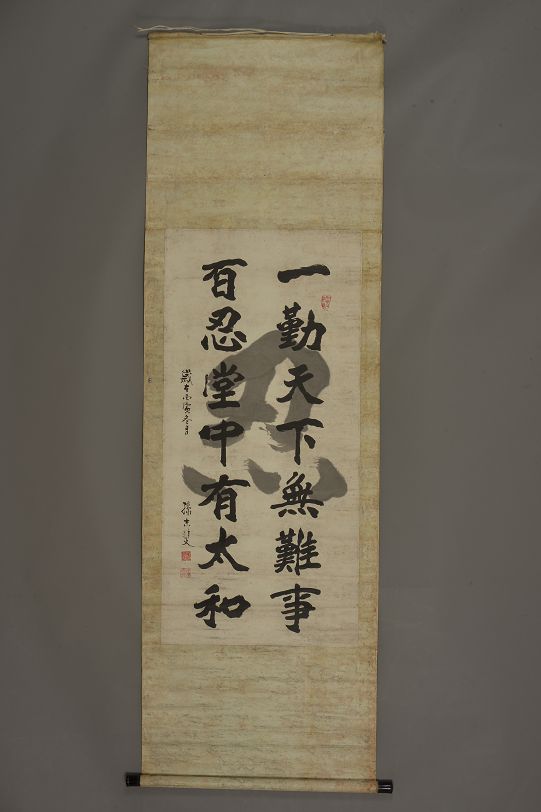 一勤天下無難事
百忍堂中有太和
忍
歲在丙寅冬月